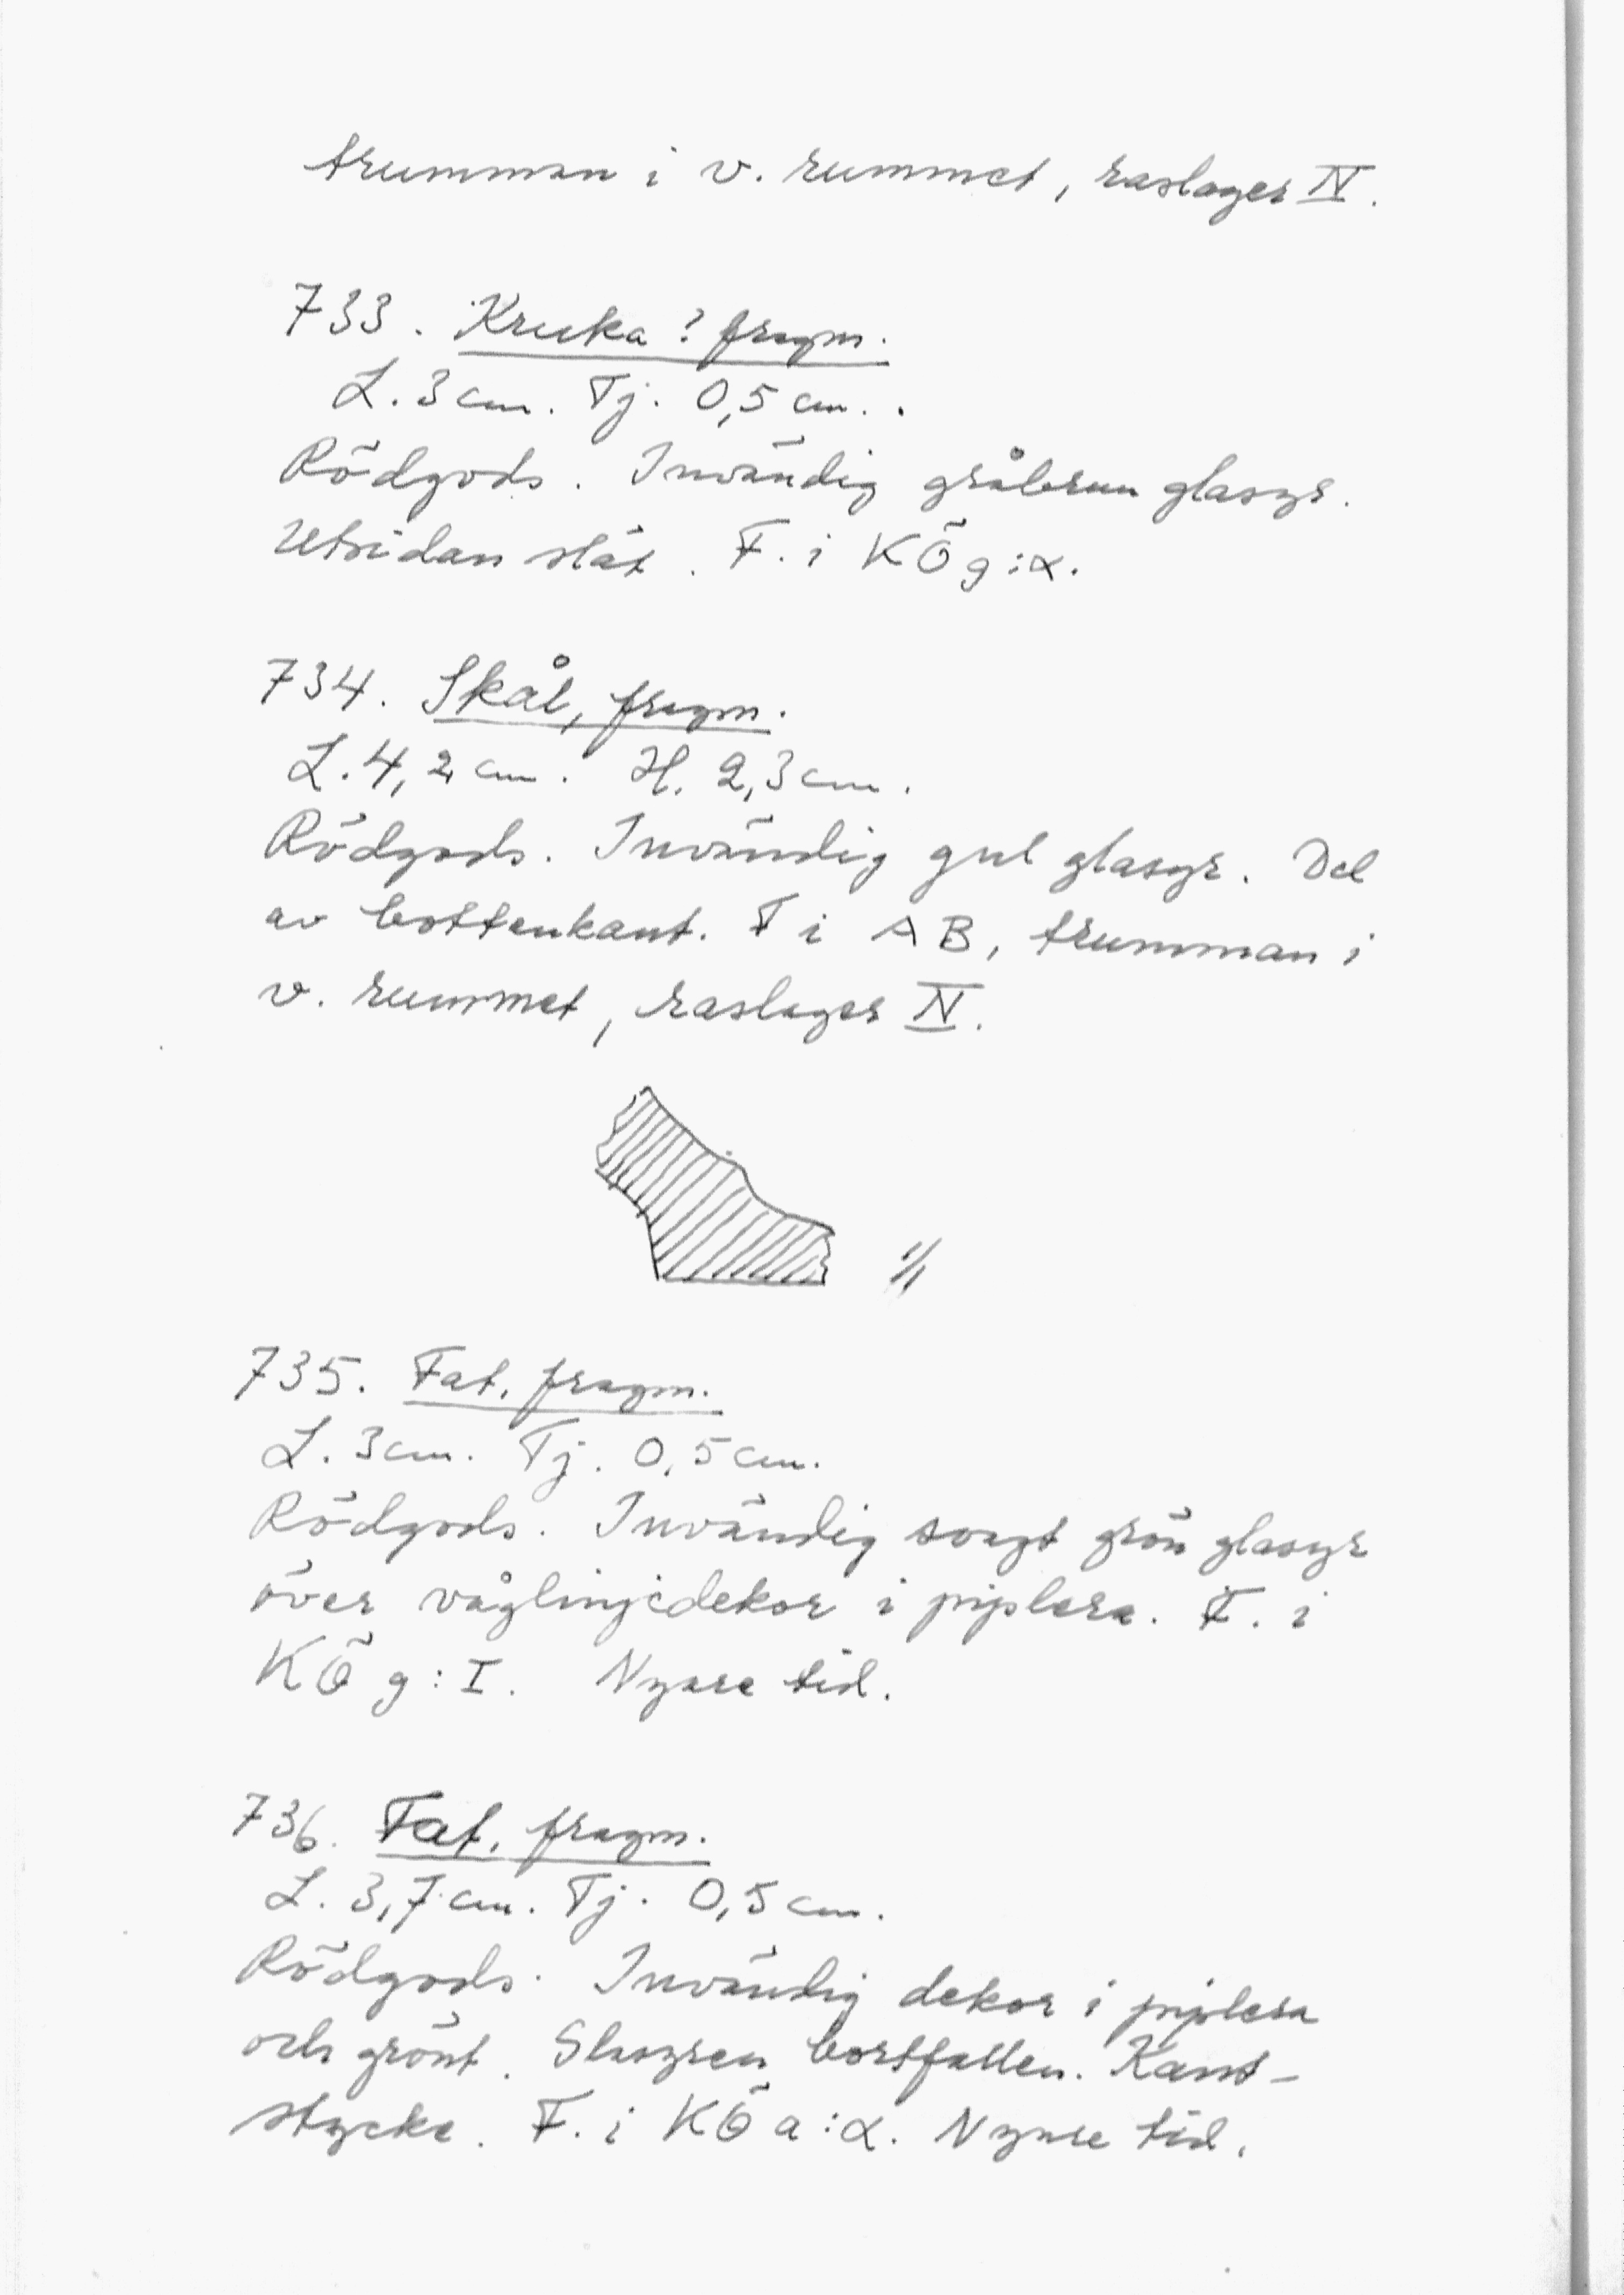 trumman i v. rummet, raslager IV.
733. Kruka? fragm.
L. 3 cm. Tj. 0,5 cm.
Rödgods. Invändig gråbrun glasyr.
Utsidan slät. F. i KÖ g:α.
734. Skål, fragm.
L. 4,2 cm. H. 2,3 cm.
Rödgods. Invändig gul glasyr. Del
av bottenkant. F i AB, trumman i
v. rummet, raslager IV.
1/1
735. Fat, fragm.
L. 3 cm. Tj. 0,5 cm.
Rödgods. Invändig svagt grön glasyr
över våglinjedekor i piplera. F. i
KÖ g:I. Nyare tid.
736. Fat, fragm.
L. 3,7 cm. Tj. 0,5 cm.
Rödgods. Invändig dekor i piplera
och grönt. Glasyren bortfallen. Kant-
stycke. F. i KÖ a:α. Nyare tid.